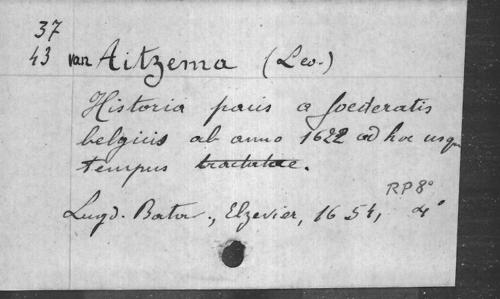 37
43 van Aitzema (Leo.)
Historia pacis a foederatis
belgicis ab anno 1622 ad hoc usqu
tempus tractatae.
RP 8°
Lugd. Batav., Elzevier, 1654, 4°